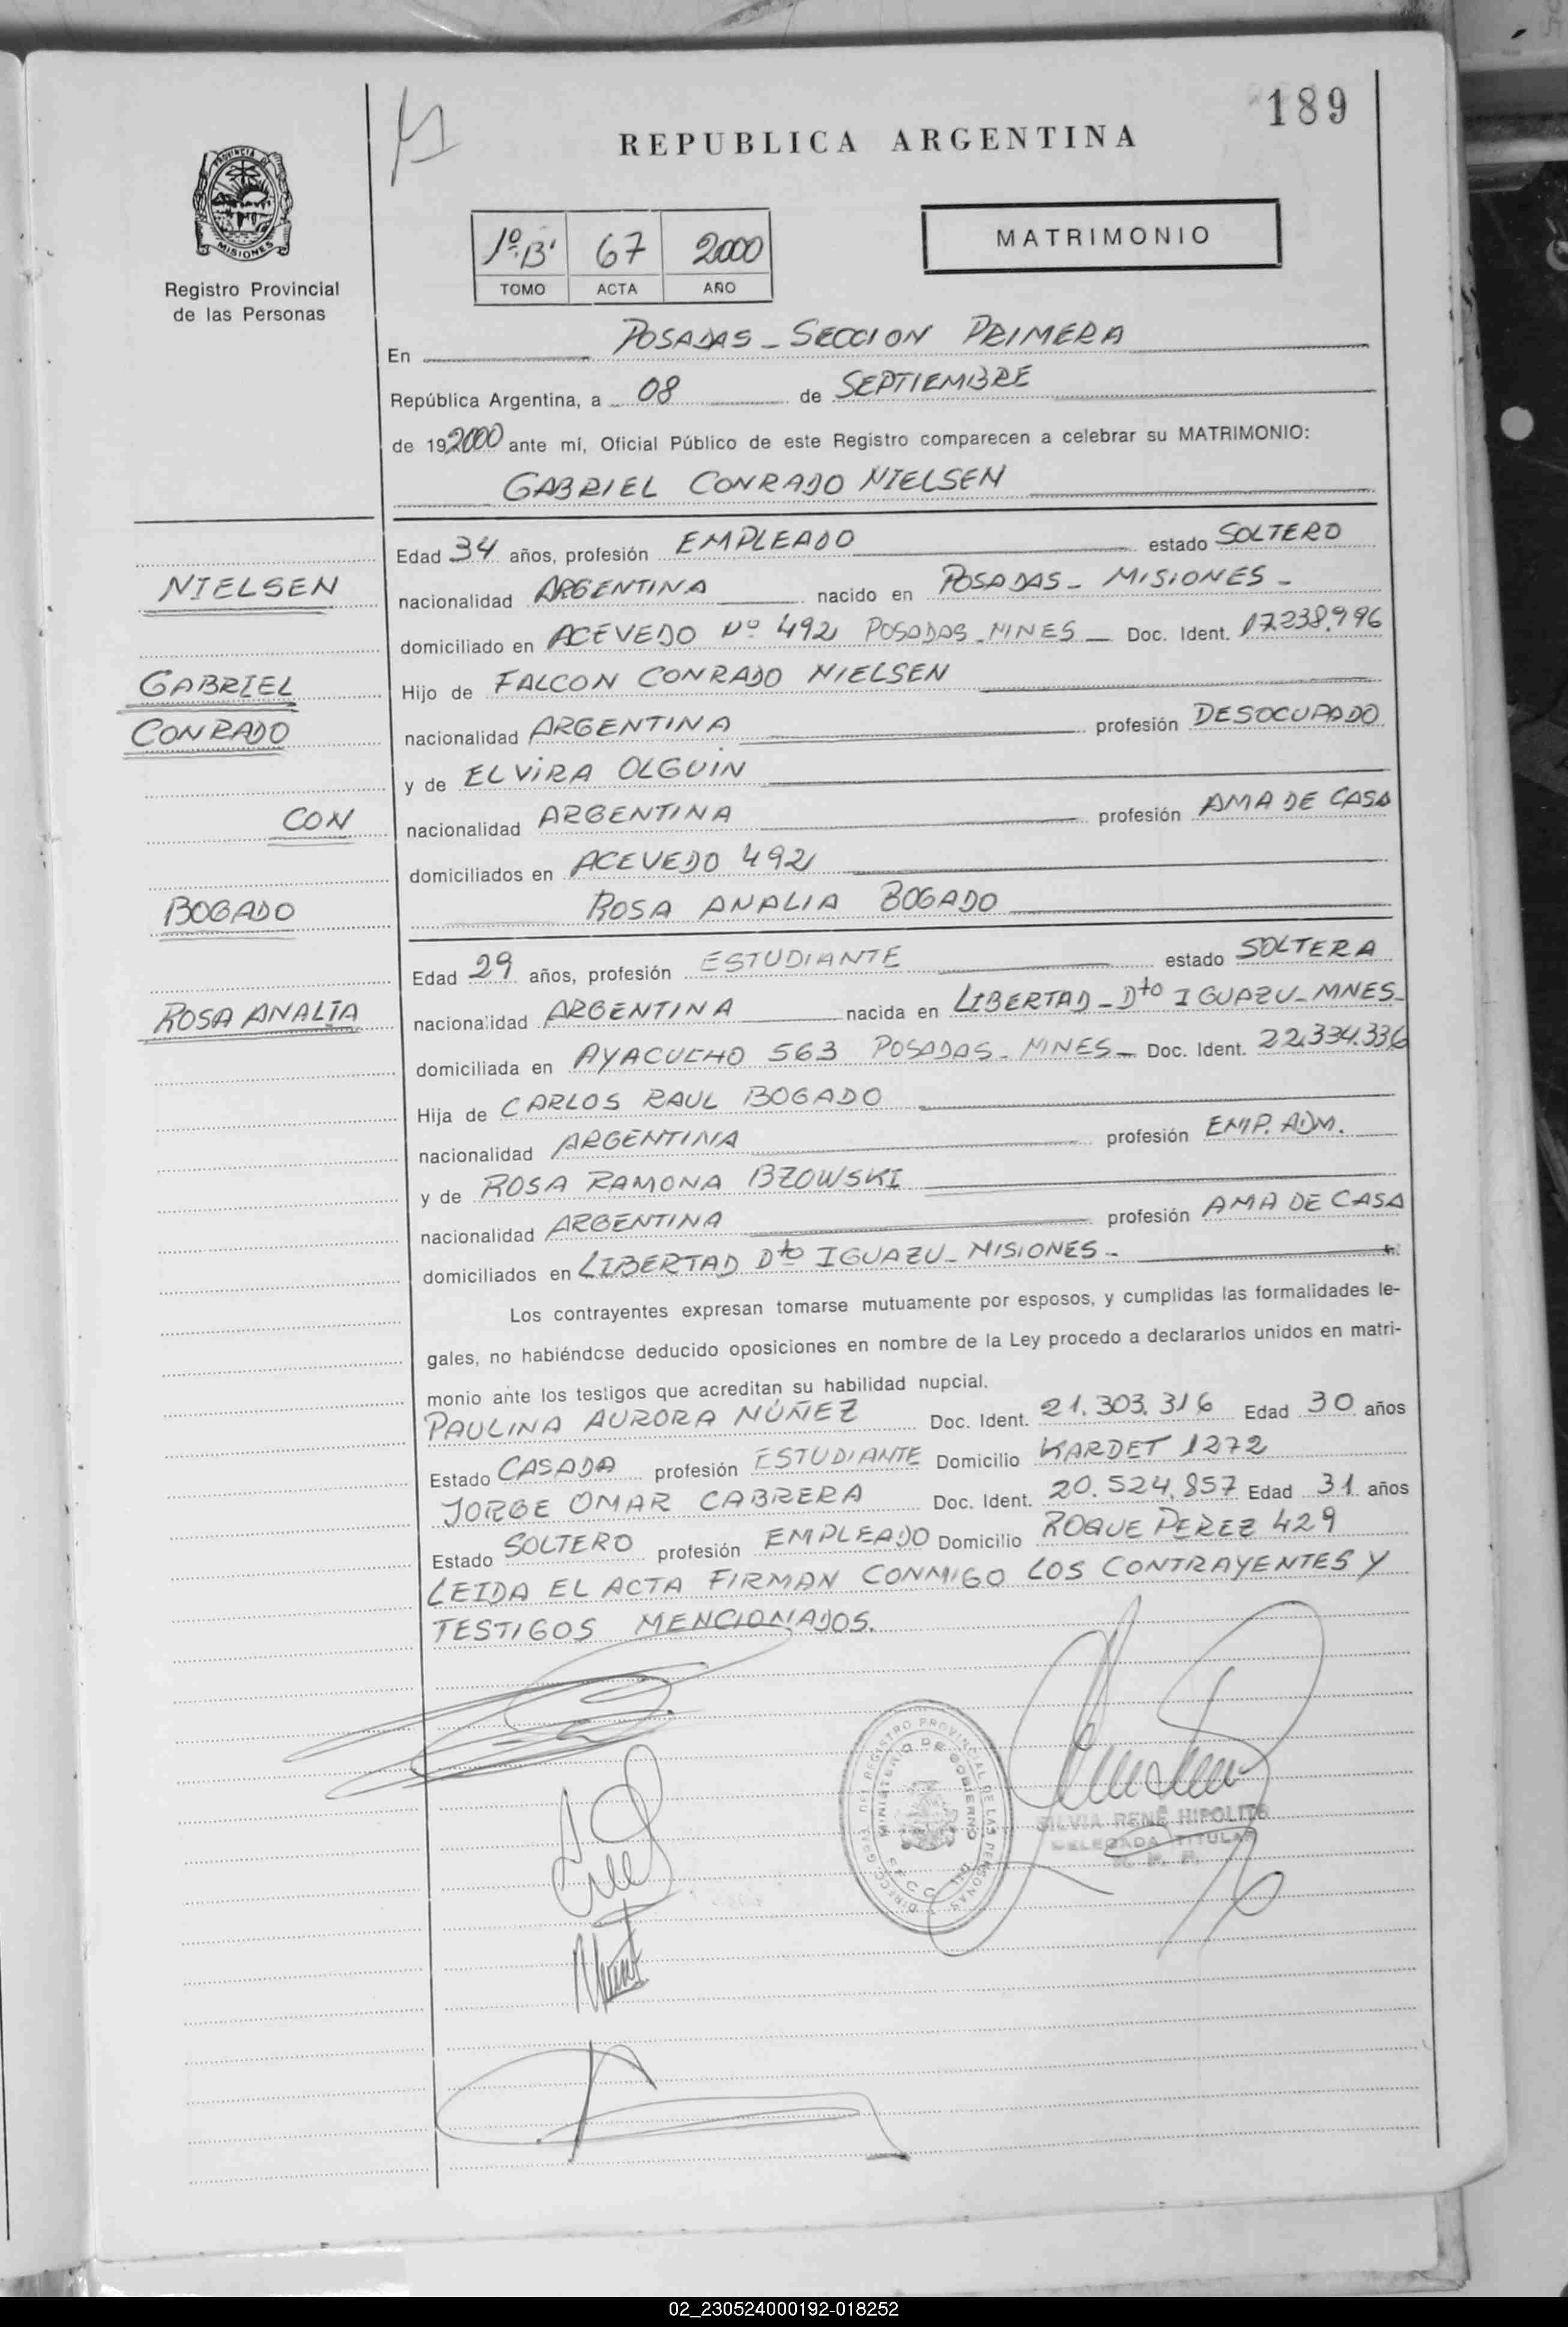 189
REPUBLICA ARGENTINA
PROVINCIA DE
MISIONES
Registro Provincial
de las Personas
1º "B" 67 2000
TOMO ACTA AÑO
MATRIMONIO
En POSADAS - SECCION PRIMERA
República Argentina, a 08 de SEPTIEMBRE
de 192000 ante mí, Oficial Público de este Registro comparecen a celebrar su MATRIMONIO:
GABRIEL CONRADO NIELSEN
Edad 34 años, profesión EMPLEADO estado SOLTERO
NIELSEN
nacionalidad ARGENTINA nacido en POSADAS - MISIONES -
domiciliado en ACEVEDO Nº 492 POSADAS - MNES - Doc. Ident. 17.238.996
GABRIEL
Hijo de FALCON CONRADO NIELSEN
CONRADO
nacionalidad ARGENTINA profesión DESOCUPADO
y de ELVIRA OLGUIN
CON
nacionalidad ARGENTINA profesión AMA DE CASA
domiciliados en ACEVEDO 492
BOGADO
ROSA ANALIA BOGADO
Edad 29 años, profesión ESTUDIANTE estado SOLTERA
ROSA ANALIA
nacionalidad ARGENTINA nacida en LIBERTAD - Dto IGUAZU - MNES -
domiciliada en AYACUCHO 563 POSADAS - MNES - Doc. Ident. 22.334.336
Hija de CARLOS RAUL BOGADO
nacionalidad ARGENTINA profesión EMP. ADM.
y de ROSA RAMONA BZOWSKI
nacionalidad ARGENTINA profesión AMA DE CASA
domiciliados en LIBERTAD Dto IGUAZU - MISIONES -
Los contrayentes expresan tomarse mutuamente por esposos, y cumplidas las formalidades le-
gales, no habiéndose deducido oposiciones en nombre de la Ley procedo a declararlos unidos en matri-
monio ante los testigos que acreditan su habilidad nupcial.
PAULINA AURORA NÚÑEZ Doc. Ident. 21.303.316 Edad 30 años
Estado CASADA profesión ESTUDIANTE Domicilio KARDET 1272
JORGE OMAR CABRERA Doc. Ident. 20.524.857 Edad 31 años
Estado SOLTERO profesión EMPLEADO Domicilio ROQUE PEREZ 429
LEIDA EL ACTA FIRMAN CONMIGO LOS CONTRAYENTES Y
TESTIGOS MENCIONADOS.
DIRECC. GRAL. DEL REGISTRO PROVINCIAL DE LAS PERSONAS
MINISTERIO DE GOBIERNO
SILVIA RENE HIPOLITO
DELEGADA TITULAR
02_230524000192-018252